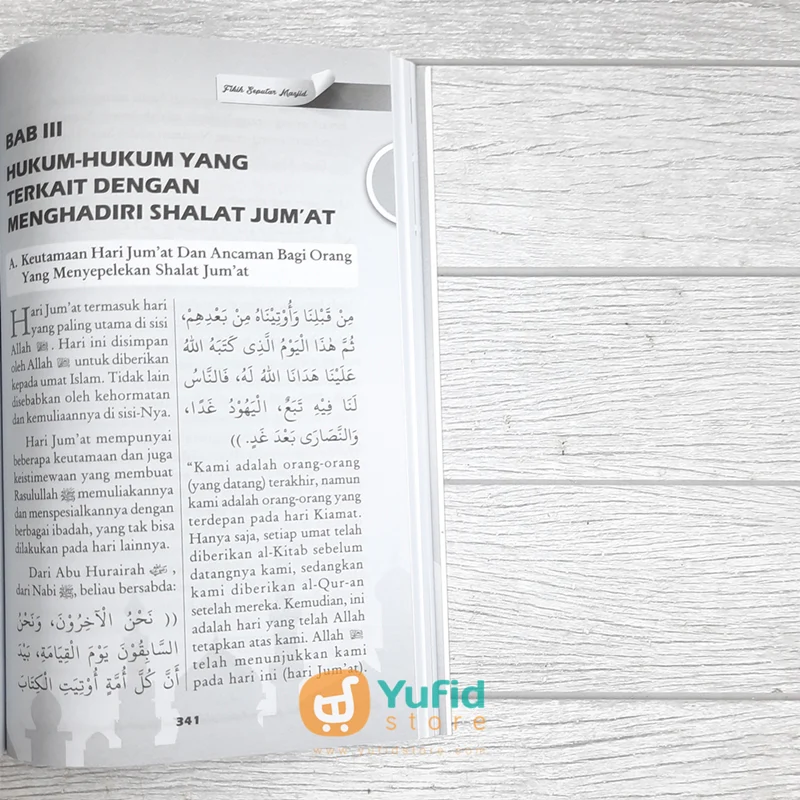 Fikih Seputar Masjid
BAB III
HUKUM-HUKUM YANG
TERKAIT DENGAN
MENGHADIRI SHALAT JUM'AT
A. Keutamaan Hari Jum'at Dan Ancaman Bagi Orang
Yang Menyepelekan Shalat Jum'at
Hari Jum'at termasuk hari
yang paling utama di sisi
Allah ﷻ. Hari ini disimpan
oleh Allah ﷻ untuk diberikan
kepada umat Islam. Tidak lain
disebabkan oleh kehormatan
dan kemuliaannya di sisi-Nya.
Hari Jum'at mempunyai
beberapa keutamaan dan juga
keistimewaan yang membuat
Rasulullah ﷺ memuliakannya
dan menspesialkannya dengan
berbagai ibadah, yang tak bisa
dilakukan pada hari lainnya.
Dari Abu Hurairah ,
dari Nabi ﷺ, beliau bersabda:
(( نَحْنُ الْآخِرُوْنَ، وَنَحْنُ
السَّابِقُوْنَ يَوْمَ الْقِيَامَةِ، بَيْدَ
أَنَّ كُلَّ أُمَّةٍ أُوْتِيَتِ الْكِتَابَ
مِنْ قَبْلِنَا وَأُوْتِيْنَاهُ مِنْ بَعْدِهِمْ،
ثُمَّ هٰذَا الْيَوْمُ الَّذِى كَتَبَهُ اللهُ
عَلَيْنَا هَدَانَا اللهُ لَهُ، فَالنَّاسُ
لَنَا فِيْهِ تَبَعٌ، الْيَهُوْدُ غَدًا،
وَالنَّصَارَى بَعْدَ غَدٍ. ))
"Kami adalah orang-orang
(yang datang) terakhir, namun
kami adalah orang-orang yang
terdepan pada hari Kiamat.
Hanya saja, setiap umat telah
diberikan al-Kitab sebelum
datangnya kami, sedangkan
kami diberikan al-Qur-an
setelah mereka. Kemudian, ini
adalah hari yang telah Allah
tetapkan atas kami. Allah ﷻ
telah menunjukkan kami
pada hari ini (hari Jum'at).
341
Yufid
store
www.yufidstore.com